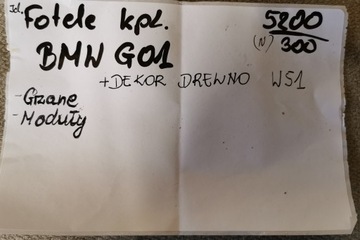 Jd. Fotele kpl. 5200
(N) 300
BMW G01
+DEKOR DREWNO WS1
-Grzane
-Moduły